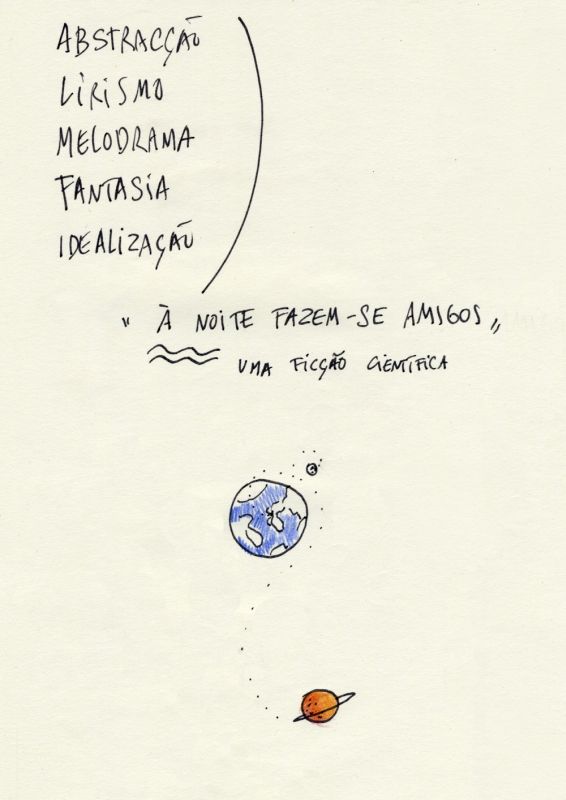 ABSTRACÇÃO
LIRISMO
MELODRAMA
FANTASIA
IDEALIZAÇÃO
" À NOITE FAZEM-SE AMIGOS „
UMA FICÇÃO CIENTÍFICA